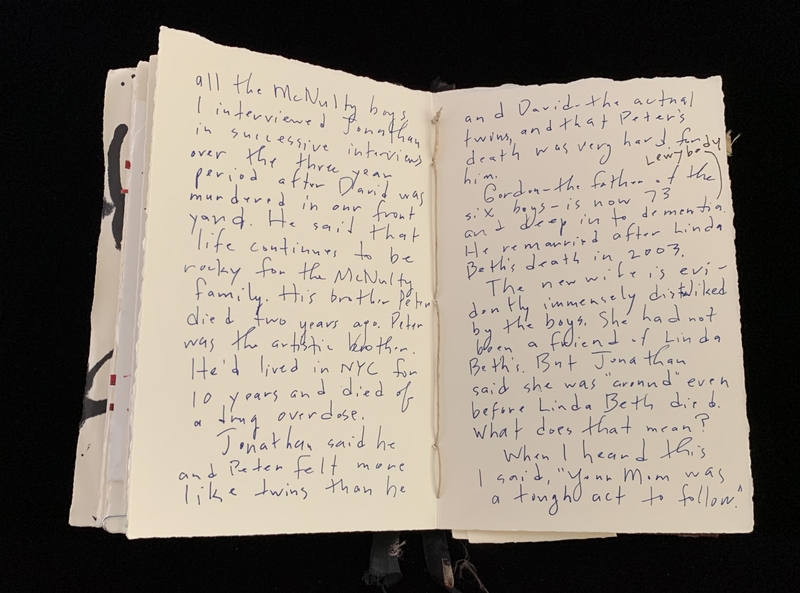 all the McNulty boys.
I interviewed Jonathan
in successive interviews
over the three year
period after David was
murdered in our front
yard. He said that
life continues to be
rocky for the McNulty
family. His brother Peter
died two years ago. Peter
was the artistic brother.
He'd lived in NYC for
10 years and died of
a drug overdose.
Jonathan said he
and Peter felt more
like twins than he
and David–the actual
twins, and that Peter's
death was very hard for
him.
Lewy body
Gordon–the father of the
six boys–is now 73
and deep in to dementia.
He remarried after Linda
Beth's death in 2003.
The new wife is evi-
dently immensely disliked
by the boys. She had not
been a friend of Linda
Beth's. But Jonathan
said she was "around" even
before Linda Beth died.
What does that mean?
When I heard this
I said, "Your Mom was
a tough act to follow."